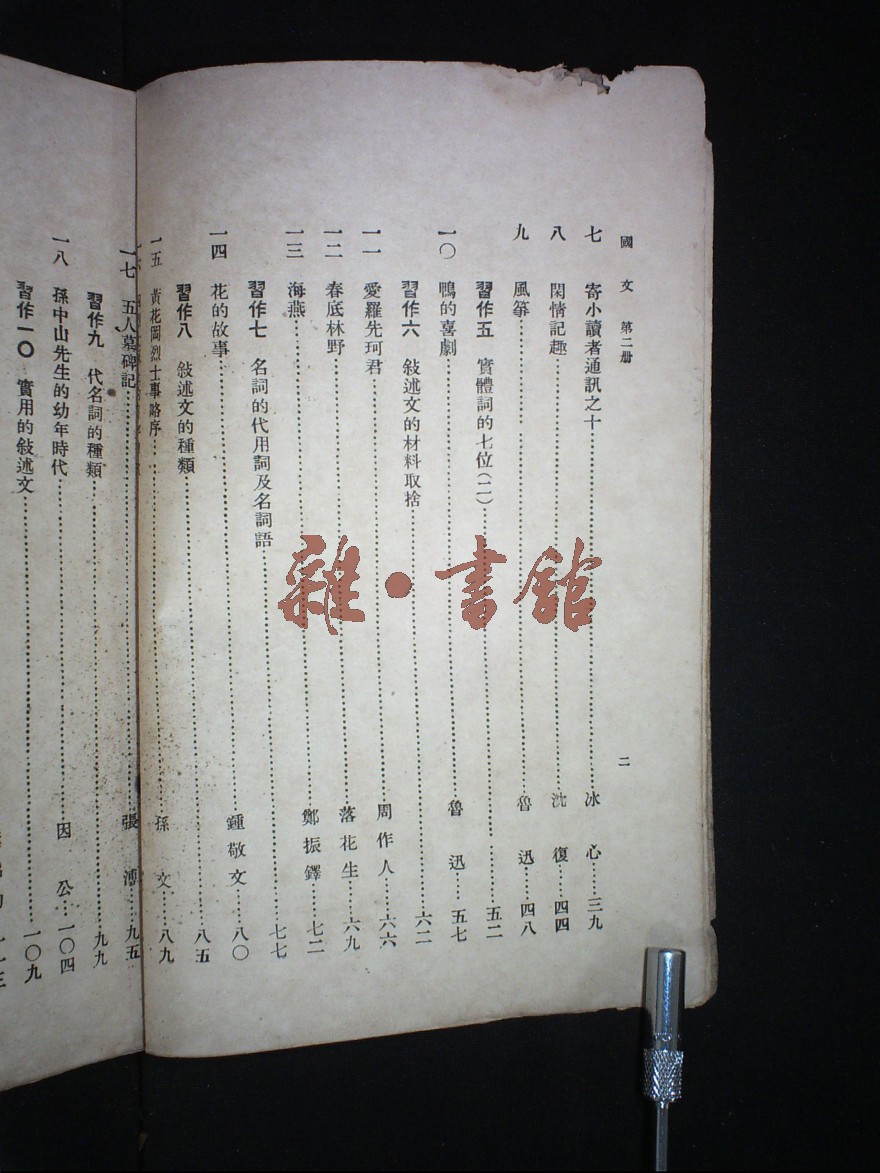 國文 第二册 二
七 寄小讀者通訊之十……冰心……三九
八 閑情記趣……沈復……四四
九 風箏……魯迅……四八
習作五 實體詞的七位(二)……五二
一〇 鴨的喜劇……魯迅……五七
習作六 敍述文的材料取捨……六二
一一 愛羅先珂君……周作人……六六
一二 春底林野……落花生……六九
一三 海燕……鄭振鐸……七二
習作七 名詞的代用詞及名詞語……七七
一四 花的故事……鍾敬文……八〇
習作八 敍述文的種類……八五
一五 黃花岡烈士事略序……孫文……八九
一七 五人墓碑記……張溥……九五
習作九 代名詞的種類……九九
一八 孫中山先生的幼年時代……因公……一〇四
習作一〇 實用的敍述文……一〇九
雜·書館